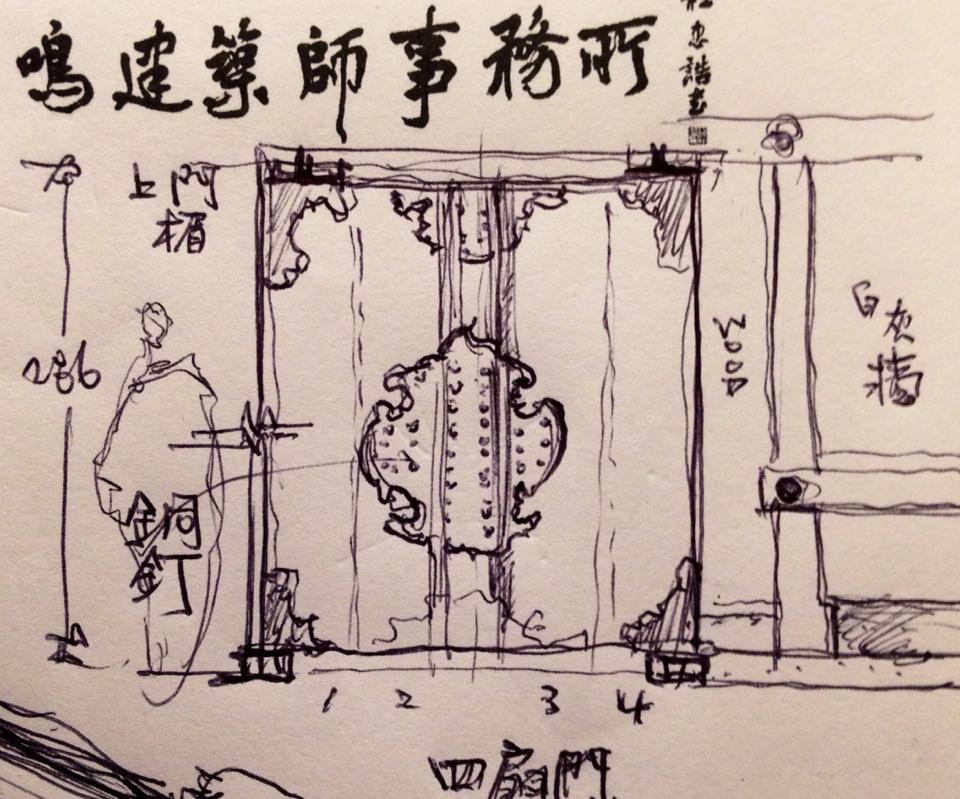 鳴建築師事務所
杜忠誥書
上門
楣
286
3000
白灰
牆
銅
釘
1 2 3 4
四扇門